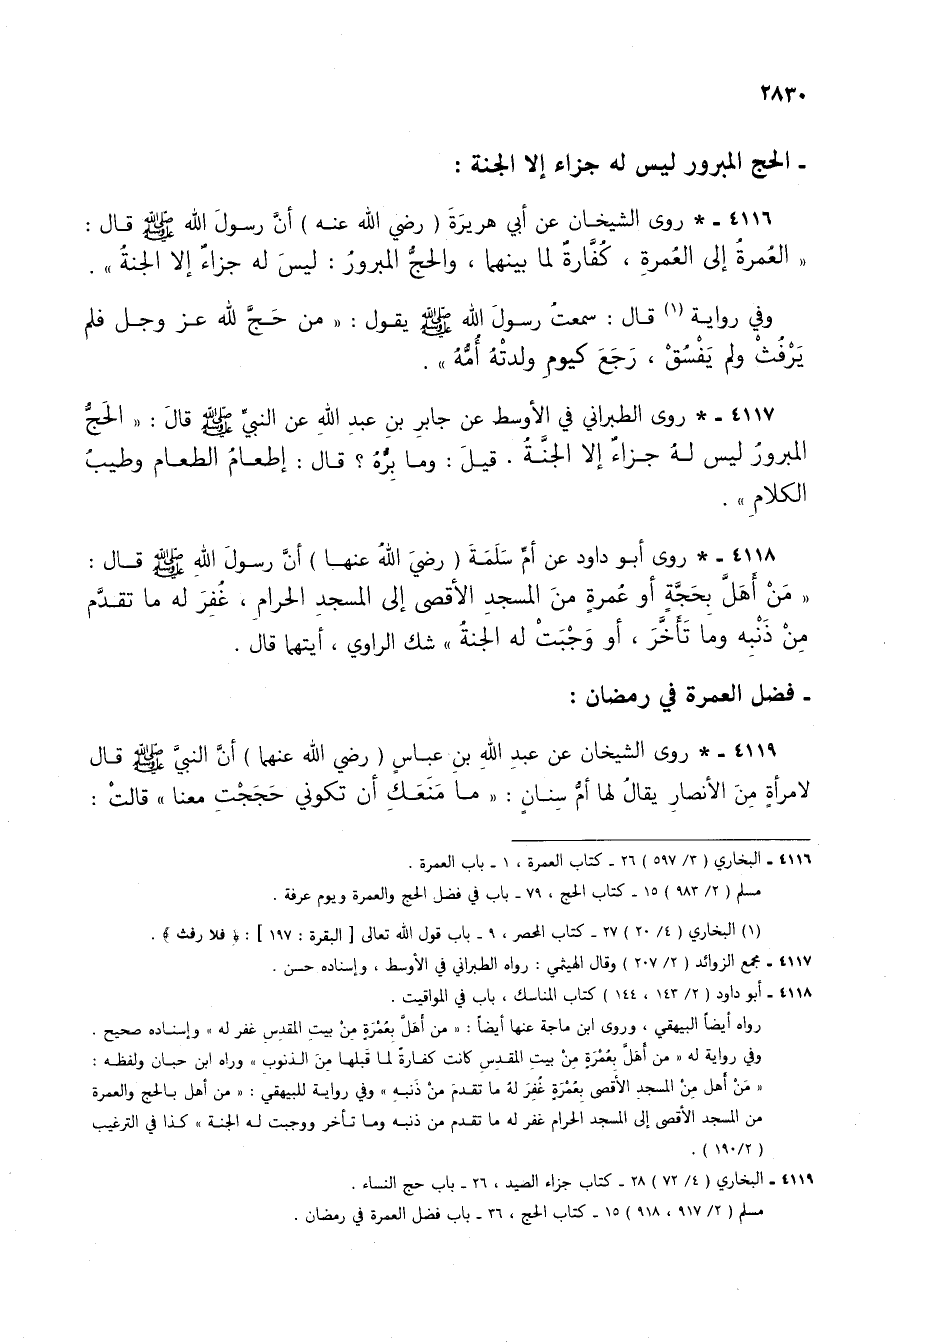 ٢٨٣٠
ـ الحج المبرور ليس له جزاء إلا الجنة :
٤١١٦ ـ * روى الشيخان عن أبي هريرَةَ ( رضي الله عنه ) أنَّ رسولَ الله ﷺ قال :
« العُمرةُ إلى العُمرةِ ، كُفَّارةٌ لما بينها ، والحجُّ المبرورُ : ليسَ له جزاءٌ إلا الجنةُ » .
وفي رواية (١) قال : سمعتُ رسولَ الله ﷺ يقول : « من حَجَّ لله عز وجل فلم
يَرْفُثْ ولم يَفْسُقْ ، رَجَعَ كيومِ ولدتْهُ أُمُّهُ » .
٤١١٧ ـ * روى الطبراني في الأوسط عن جابرِ بنِ عبد اللهِ عن النبيِّ ﷺ قالَ : « الحَجُّ
المبرورُ ليس لهُ جزاءٌ إلا الجنَّةُ . قيلَ : وما برُّهُ ؟ قال : إطعامُ الطعام وطيبُ
الكلامِ » .
٤١١٨ ـ * روى أبو داود عن أمِّ سَلَمَةَ ( رضيَ اللهُ عنها ) أنَّ رسولَ اللهِ ﷺ قال :
« مَنْ أَهَلَّ بِحَجَّةٍ أو عُمرةٍ منَ المسجد الأقصى إلى المسجدِ الحرامِ ، غُفِرَ له ما تقدَّم
مِنْ ذَنْبِه وما تَأَخَّرَ ، أو وَجْبَتْ له الجنةُ » شك الراوي ، أيتهما قال .
ـ فضل العمرة في رمضان :
٤١١٩ ـ * روى الشيخان عن عبدِ اللهِ بنِ عباسٍ ( رضي الله عنهما ) أنَّ النبيَّ ﷺ قال
لامرأةٍ مِنَ الأنصارِ يقالُ لها أمُّ سِنانٍ : « ما مَنَعَكِ أن تكوني حَجَجْتِ معنا » قالتْ :
٤١١٦ ـ البخاري ( ٣/ ٥٩٧ ) ٢٦ ـ كتاب العمرة ، ١ ـ باب العمرة .
مسلم ( ٢/ ٩٨٣ ) ١٥ ـ كتاب الحج ، ٧٩ ـ باب في فضل الحج والعمرة ويوم عرفة .
(١) البخاري ( ٤/ ٢٠ ) ٢٧ ـ كتاب المحصر ، ٩ ـ باب قول الله تعالى [ البقرة : ١٩٧ ] : ﴿ فلا رفث ﴾ .
٤١١٧ ـ مجمع الزوائد ( ٢/ ٢٠٧ ) وقال الهيثمي : رواه الطبراني في الأوسط ، وإسناده حسن .
٤١١٨ ـ أبو داود ( ٢/ ١٤٣ ، ١٤٤ ) كتاب المناسك ، باب في المواقيت .
رواه أيضاً البيهقي ، وروى ابن ماجة عنها أيضاً : « من أهلَّ بعُمْرَةٍ مِنْ بيتِ المقدسِ غفر له » وإسناده صحيح .
وفي رواية له « من أهلَّ بعُمْرَةٍ مِنْ بيتِ المقدس كانت كفارةً لما قَبلَها مِنَ الذنوب » وراه ابن حبان ولفظه :
« مَنْ أهل مِنْ المسجد الأقصى بعُمْرَةٍ غُفِرَ لهُ ما تقدمَ منْ ذَنبه » وفي رواية للبيهقي : « من أهل بالحج والعمرة
من المسجد الأقصى إلى المسجد الحرام غفر له ما تقدم من ذنبه وما تأخر ووجبت له الجنة » كذا في الترغيب
( ٢/١٩٠ ) .
٤١١٩ ـ البخاري ( ٤/ ٧٢ ) ٢٨ ـ كتاب جزاء الصيد ، ٢٦ ـ باب حج النساء .
مسلم ( ٢/ ٩١٧ ، ٩١٨ ) ١٥ ـ كتاب الحج ، ٣٦ ـ باب فضل العمرة في رمضان .